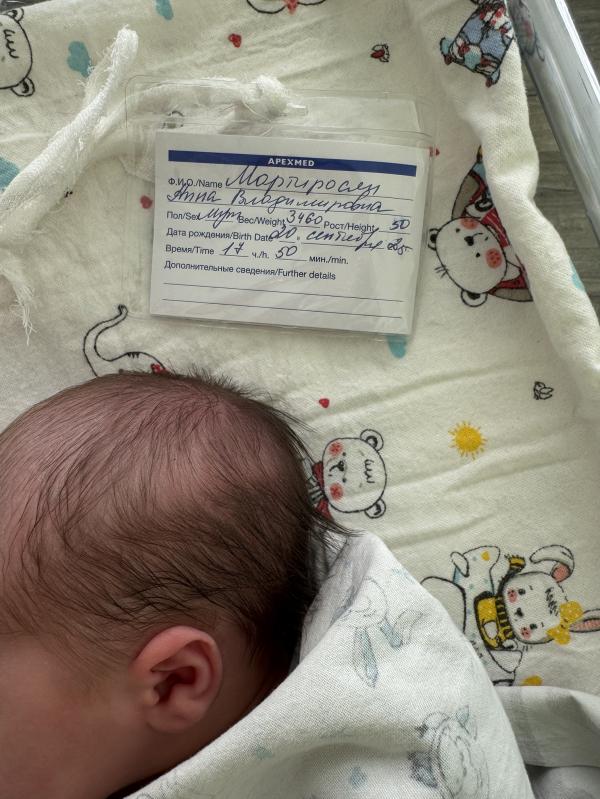 APEXMED
Ф.И.О./Name Мартиросян
Анна Владимировна
Пол/Sex Муж Вес/Weight 3460 Рост/Height 50
Дата рождения/Birth Date 20. сентября 25г.
Время/Time 17 ч./h. 50 мин./min.
Дополнительные сведения/Further details